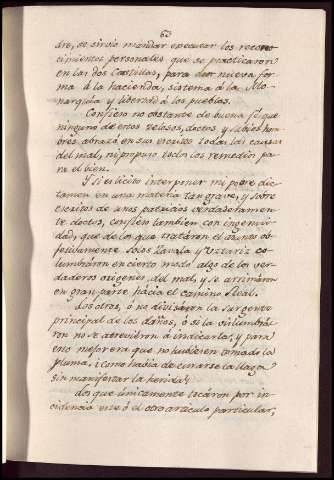 60
dre, se sirvió mandar executar los recono
cimientos personales que se practicaron
en las dos Castillas, para dar nueva for
ma á la hacienda, sistema á la Mo-
narquía y libertad á los pueblos.
Confieso no obstante de buena fe que
ninguno de estos zelosos, doctos y sabios hom
bres abrazó en sus escritos todas las causas
del mal, ni propuso todos los remedios pa
ra el bien.
Y si es lícito interponer mi pobre dic-
tamen en una materia tan grave, y sobre
escritos de unos patricios verdaderamen
te doctos, confieso tambien con ingenui-
dad, que de los que trataron el asunto
solos Zavala y Uztariz co
lumbraron en cierto modo algo de los ver
daderos origenes del mal, y se arrimaron
en gran parte hácia el camino Real.
Los otros, ó no divisaron la surgente
principal de los daños, ó si la vislumbra
ron no se atrevieron á indicarla; y para
esto mejor era que no hubiesen tomado la
pluma, i como había de curarse la llaga
sin manifestar la herida!
Los que únicamente tocaron por in-
cidencia este ó el otro articulo particular,